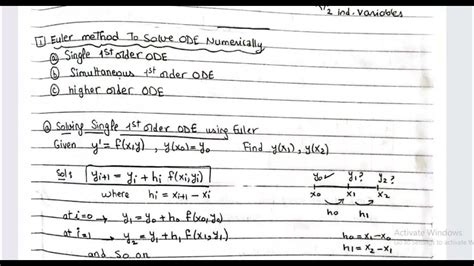 2 ind. variables
① Euler method To Solve ODE Numerically
ⓐ Single 1st order ODE
ⓑ Simultaneous 1st order ODE
ⓒ higher order ODE
ⓐ Solving Single 1st order ODE using Euler
Given y' = f(x,y) , y(x₀)=y₀ Find y(x₁) , y(x₂)
Sol: yᵢ₊₁ = yᵢ + hᵢ f(xᵢ,yᵢ)
where hᵢ = xᵢ₊₁ - xᵢ
y₀✓ y₁? y₂?
x₀ x₁ x₂
h₀ h₁
at i=0 → y₁ = y₀ + h₀ f(x₀,y₀)
at i=1 → y₂ = y₁ + h₁ f(x₁,y₁)
and So on
h₀ = x₁ - x₀
h₁ = x₂ - x₁
Activate Windows
Go to Settings to activate Windows